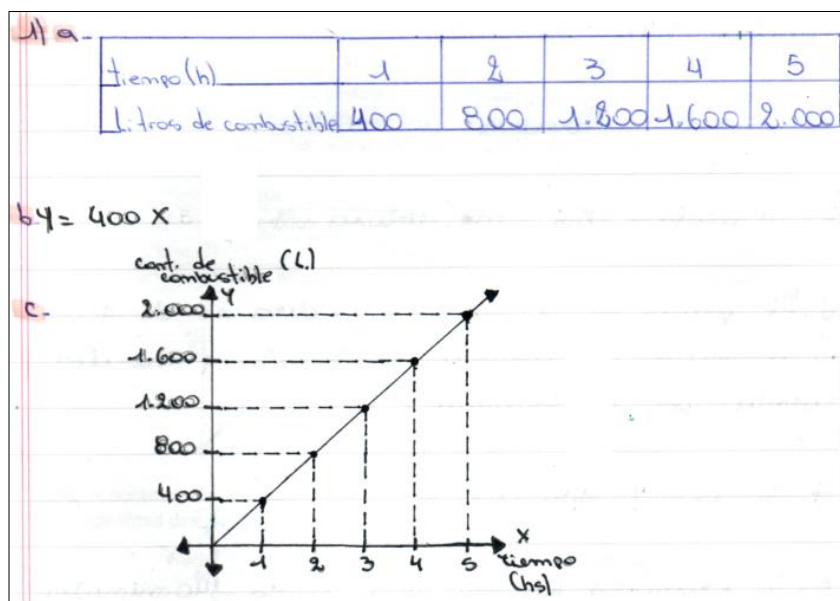 1) a-
tiempo (h) 1 2 3 4 5
Litros de combustible 400 800 1.200 1.600 2.000
b y = 400 X
cant. de combustible (L.)
c-
Y
2.000
1.600
1.200
800
400
1 2 3 4 5
X
tiempo (hs)